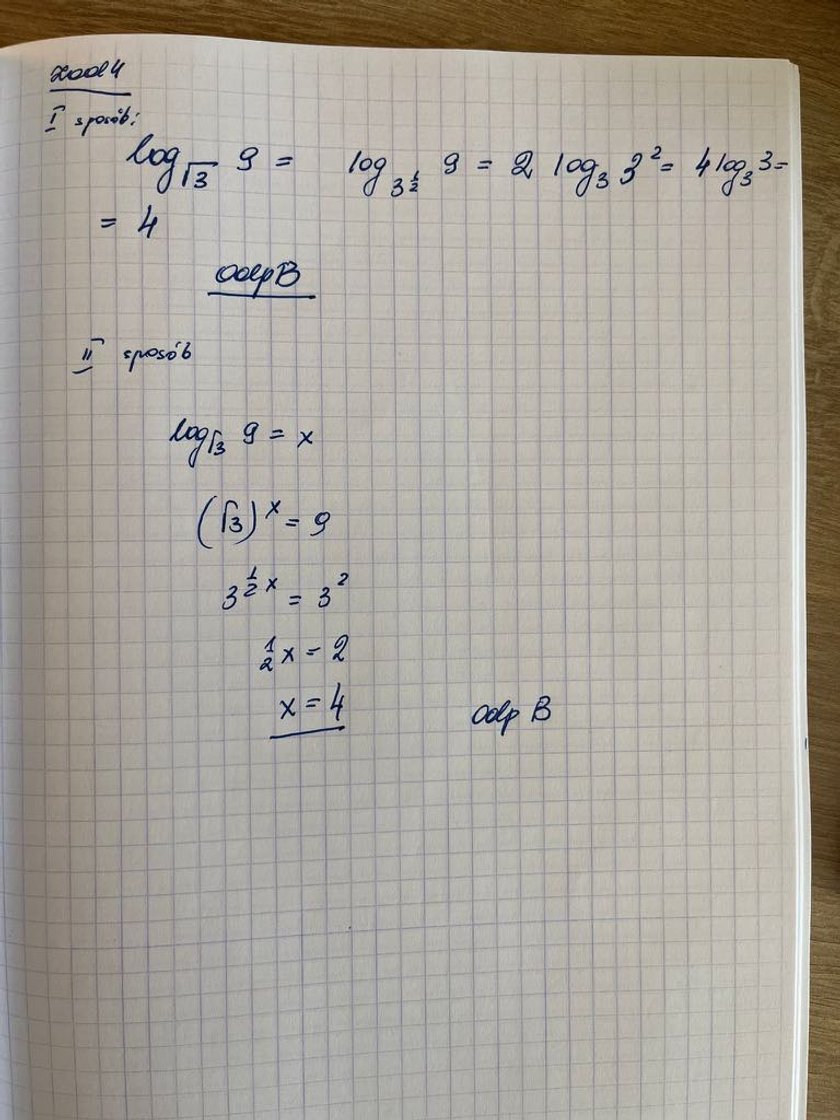 zad 4
I sposób:
log_√3 9 = log_3^½ 9 = 2 log₃ 3² = 4 log₃ 3 =
= 4
Odp B
II sposób
log_√3 9 = x
(√3)^x = 9
3^½x = 3²
½x = 2
x = 4 Odp B